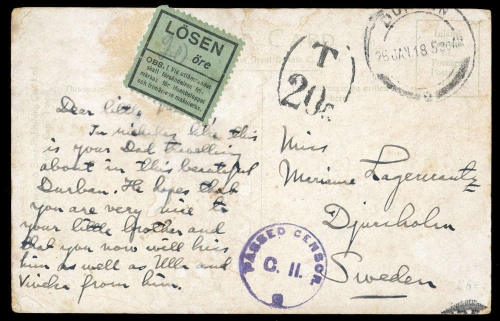 LÖSEN
öre
OBS.! Vid utlämnandet
skall försändelsen
märkas för
och frimärkena makuleras.
T
20c
DURBAN
26 JAN 18
Dear little
In rickshas like this
is your Dad travelling
about in this beautiful
Durban. He hopes that
you are very nice to
your little brother and
that you now will kiss
him as well as Ulla and
from him.
Miss
Marianne Lagercrantz
Djursholm
Sweden
PASSED CENSOR.
C. 11.